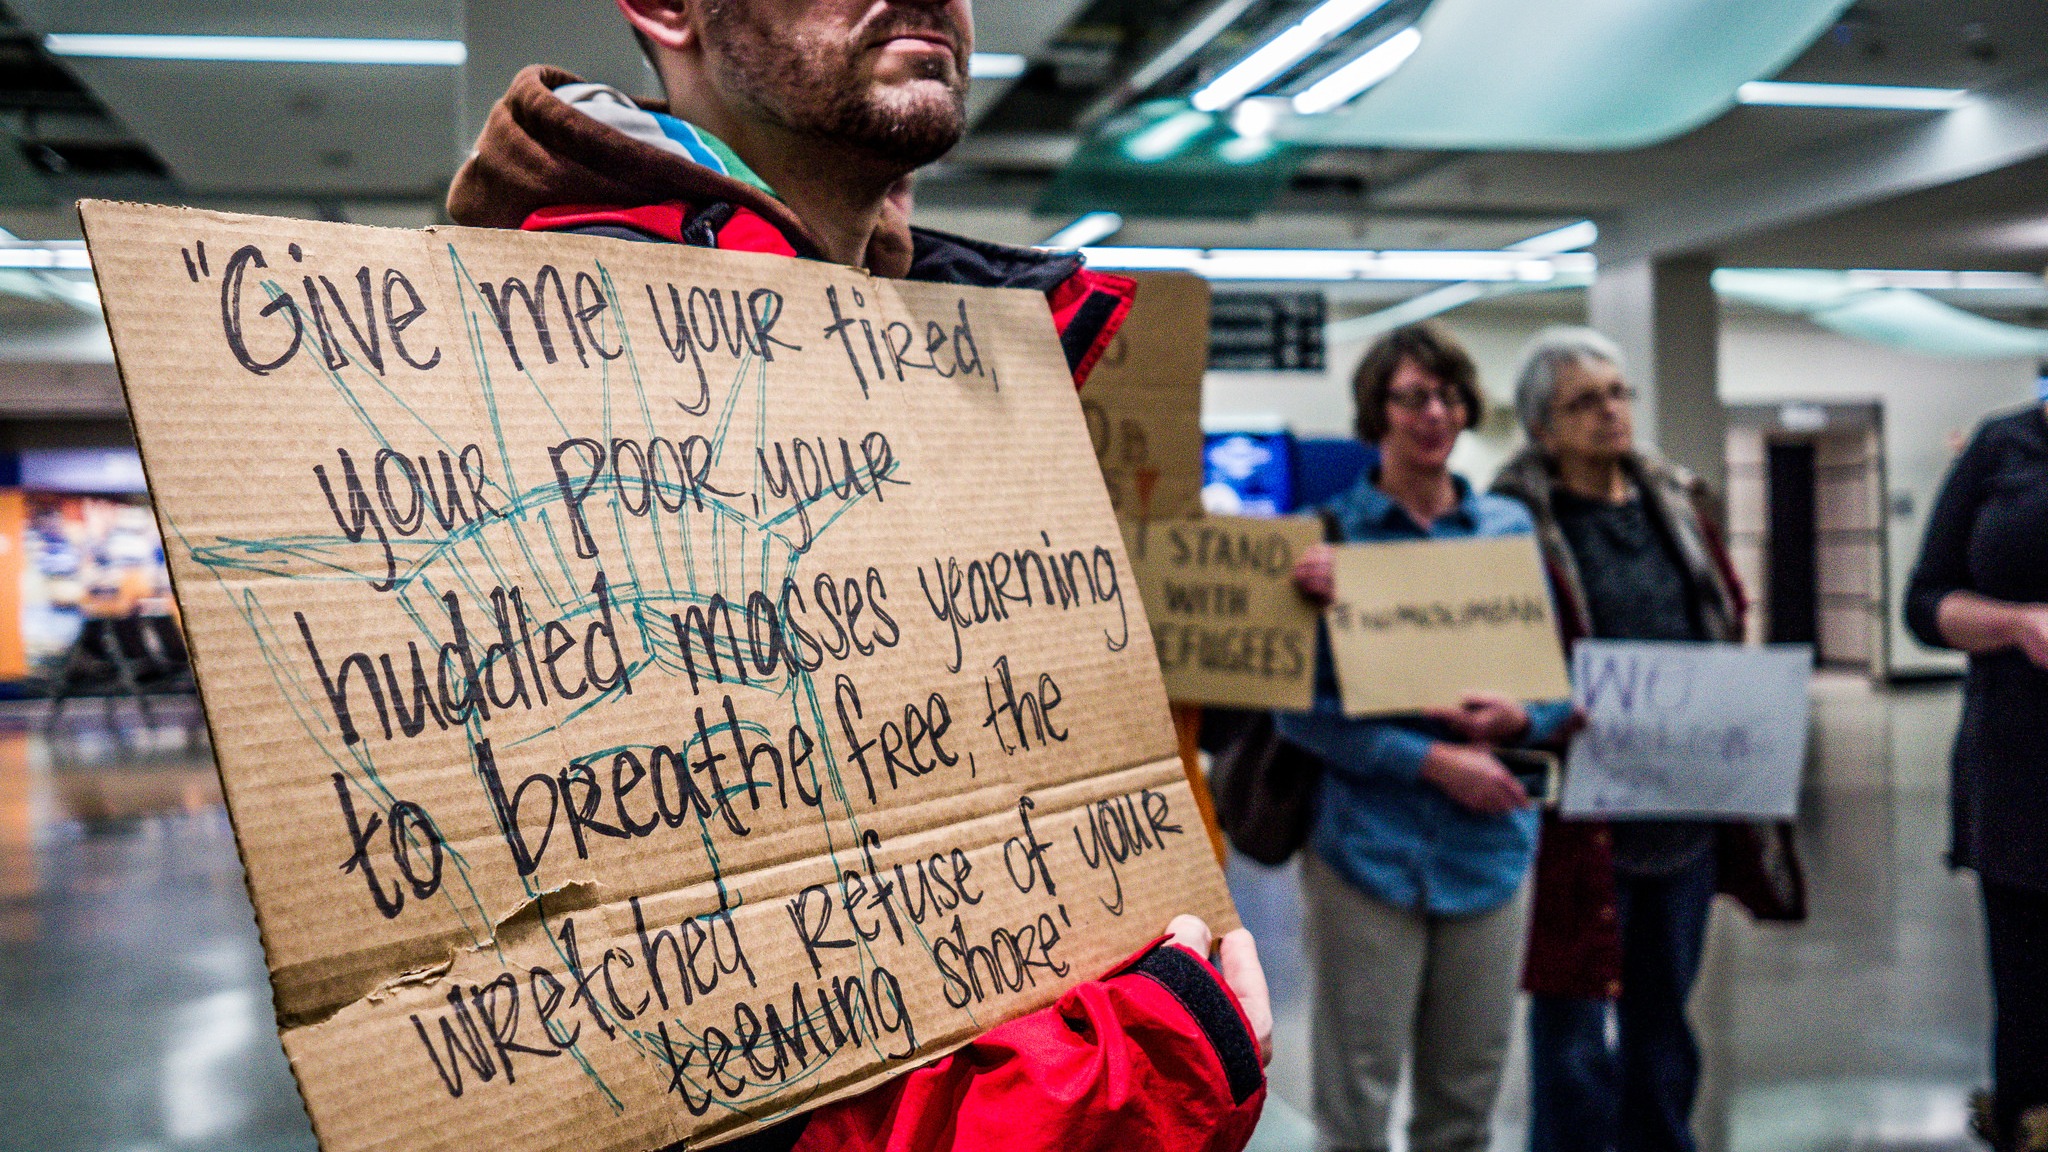 "Give me your tired,
your poor, your
huddled masses yearning
to breathe free, the
wretched refuse of your
teeming shore"
STAND
WITH
REFUGEES